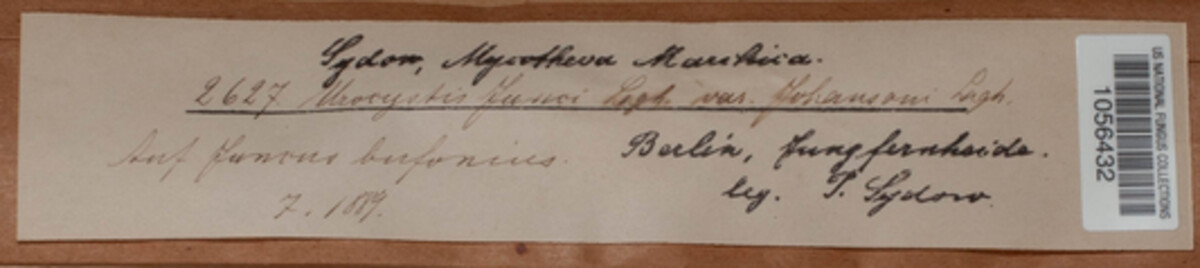 Sydow, Mycotheca Marchica.
2627 Urocystis Junci Lagh. var. Johansoni Lagh.
Auf Juncus bufonius.
7. 1889.
Berlin, Jungfernheide.
leg. P. Sydow.
US NATIONAL FUNGUS COLLECTIONS
1056432